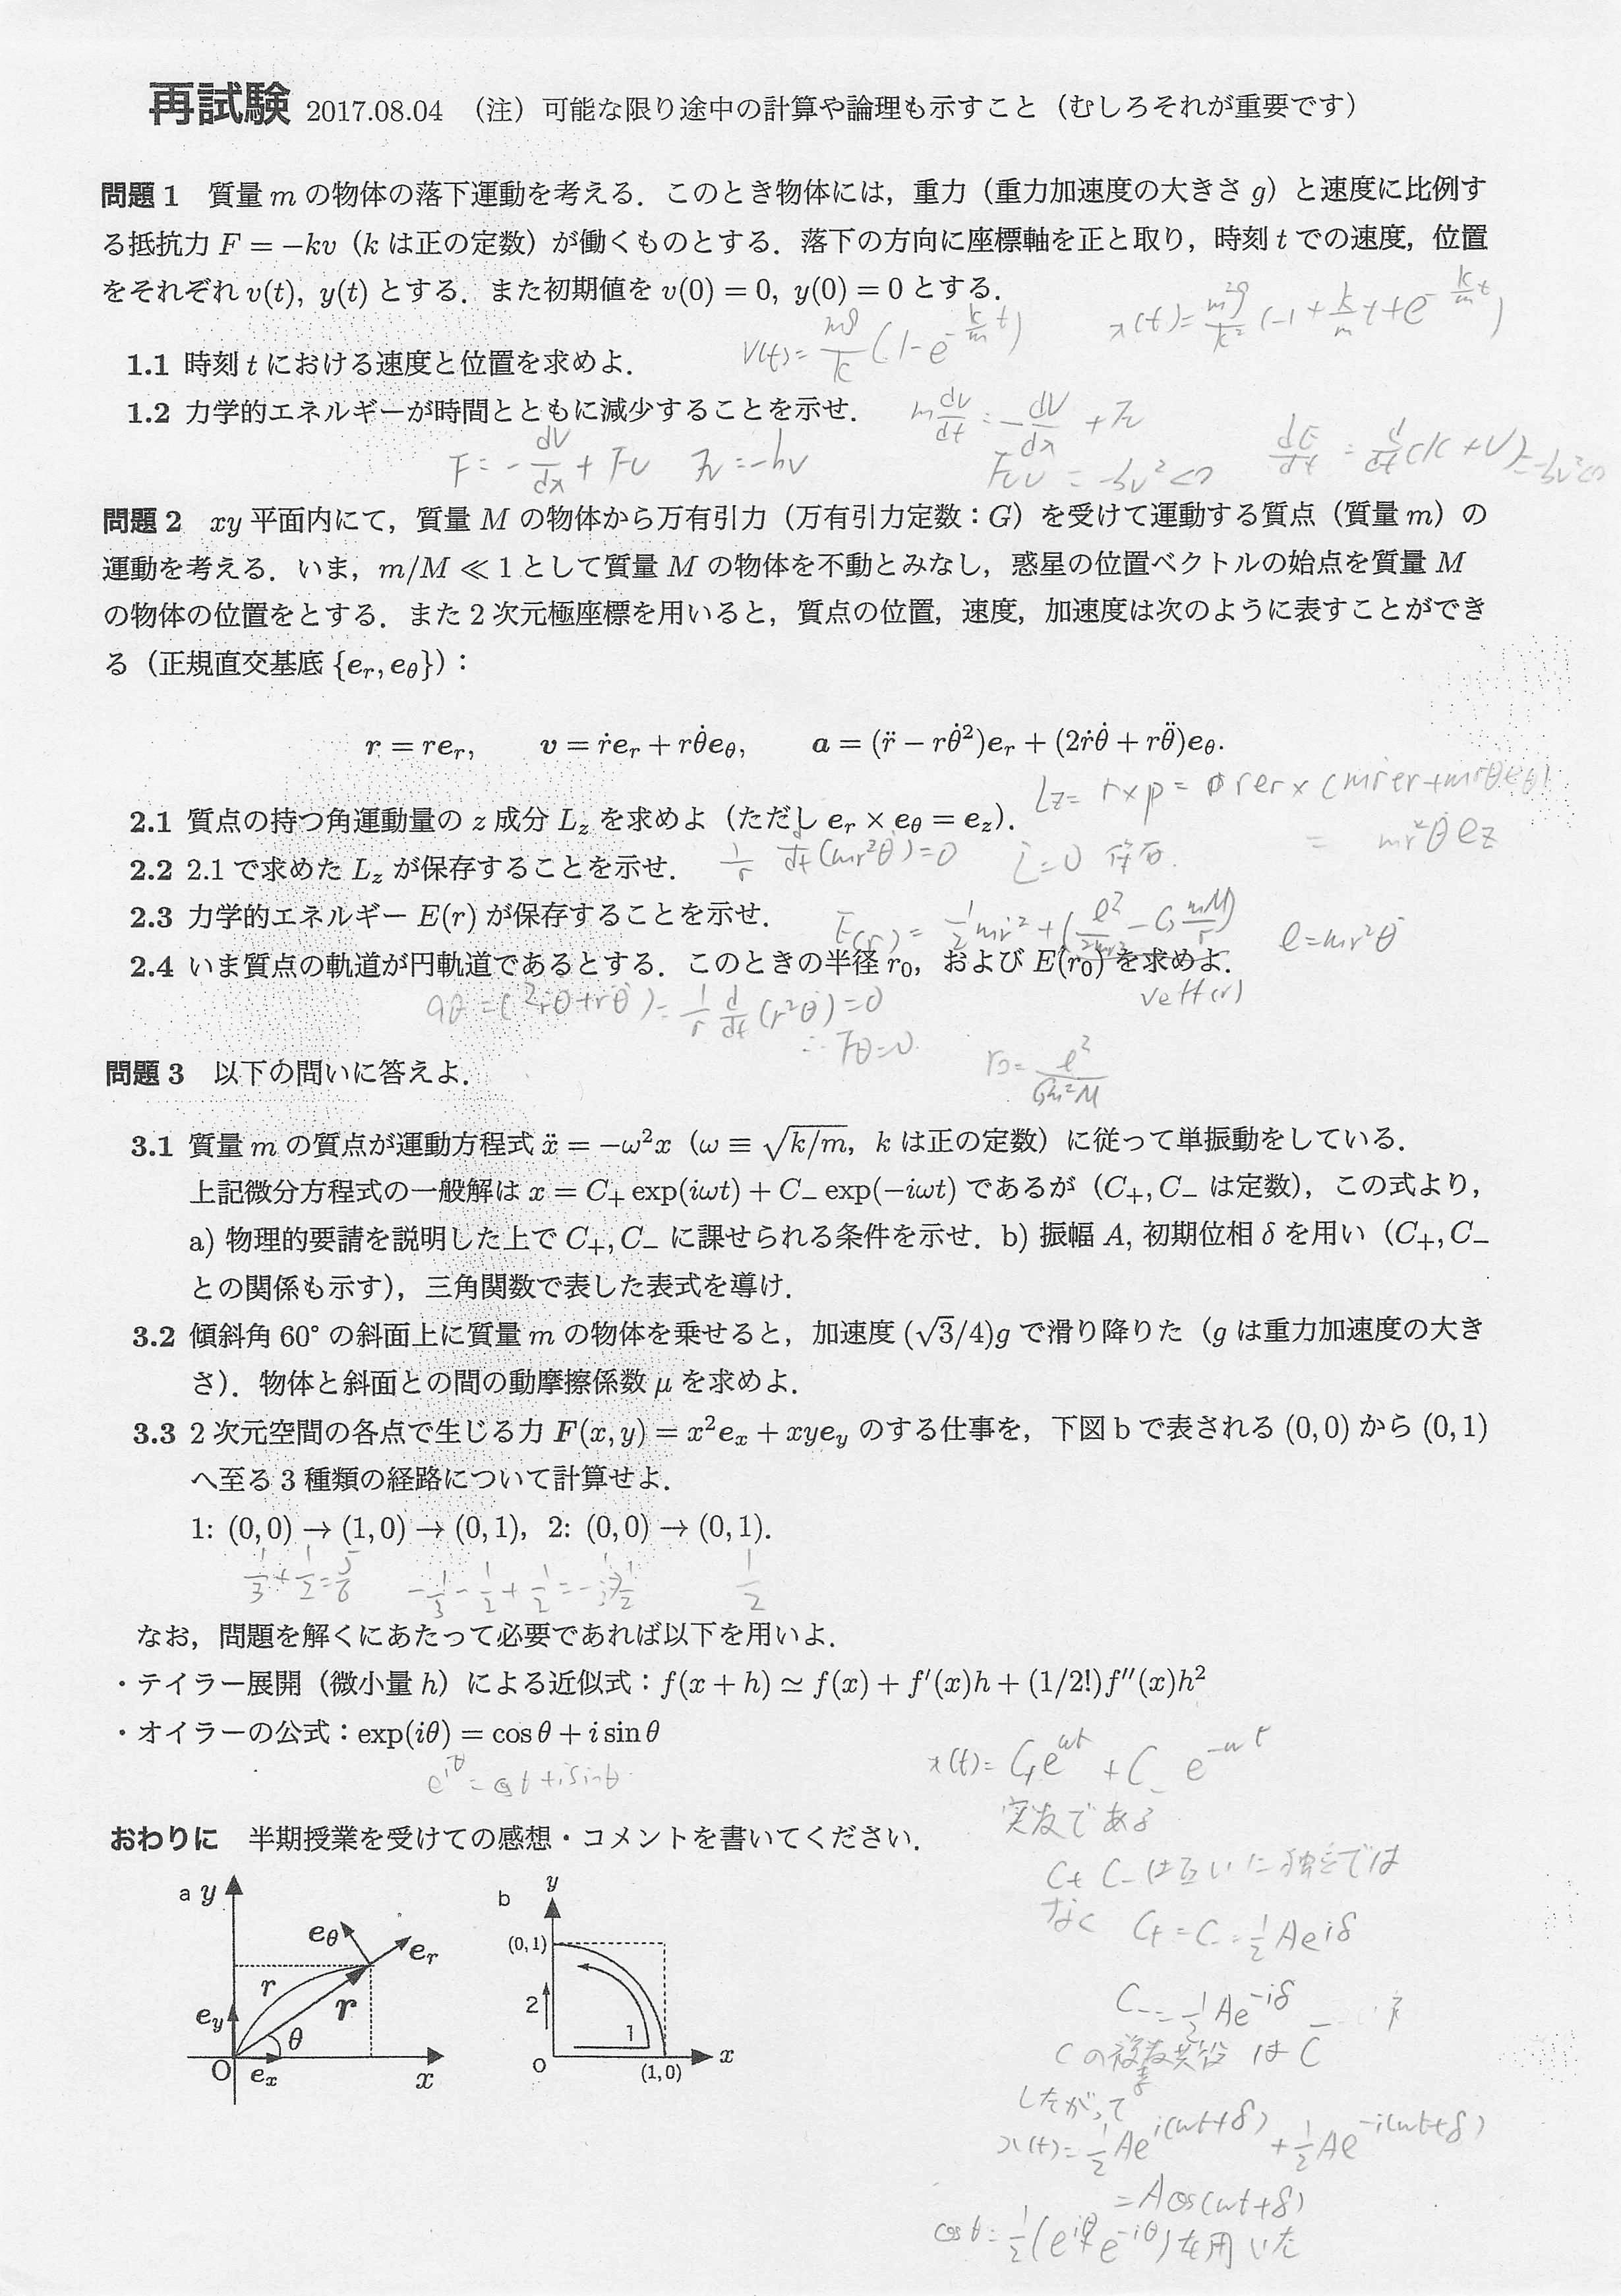 再試験 2017.08.04 （注）可能な限り途中の計算や論理も示すこと（むしろそれが重要です）
問題 1 質量 m の物体の落下運動を考える．このとき物体には，重力（重力加速度の大きさ g）と速度に比例す
る抵抗力 F = −kv（k は正の定数）が働くものとする．落下の方向に座標軸を正と取り，時刻 t での速度，位置
をそれぞれ v(t), y(t) とする．また初期値を v(0) = 0, y(0) = 0 とする．
v(t)= mg/k (1-e^{-k/m t}) x(t)= m²g/k² (-1+k/m t+e^{-k/m t})
1.1 時刻 t における速度と位置を求めよ．
1.2 力学的エネルギーが時間とともに減少することを示せ．
m dv/dt = -dV/dx +Fv
F=-dV/dx+Fv Fv=-bv Fvv=-bv²<0 dE/dt = d/dt(K+V)=-bv²<0
問題 2 xy 平面内にて，質量 M の物体から万有引力（万有引力定数：G）を受けて運動する質点（質量 m）の
運動を考える．いま，m/M ≪ 1 として質量 M の物体を不動とみなし，惑星の位置ベクトルの始点を質量 M
の物体の位置をとする．また 2 次元極座標を用いると，質点の位置，速度，加速度は次のように表すことができ
る（正規直交基底 {e_r, e_θ}）：
r = re_r, v = ṙe_r + rθ̇e_θ, a = (r̈ − rθ̇²)e_r + (2ṙθ̇ + rθ̈)e_θ.
Lz= r×p = rer×(mṙer+mrθ̇eθ)
= mr²θ̇ez
2.1 質点の持つ角運動量の z 成分 L_z を求めよ（ただし e_r × e_θ = e_z）．
2.2 2.1 で求めた L_z が保存することを示せ．
1/r d/dt(mr²θ̇)=0 L̇=0 保存
2.3 力学的エネルギー E(r) が保存することを示せ．
E(r)= 1/2mṙ²+(ℓ²/2mr²-G mM/r) ℓ=mr²θ̇
2.4 いま質点の軌道が円軌道であるとする．このときの半径 r₀，および E(r₀) を求めよ．
Veff(r)
aθ=(2ṙθ̇+rθ̈)=1/r d/dt(r²θ̇)=0
∴Fθ=0
r0= ℓ²/Gm²M
問題 3 以下の問いに答えよ．
3.1 質量 m の質点が運動方程式 ẍ = −ω²x（ω ≡ √k/m，k は正の定数）に従って単振動をしている．
上記微分方程式の一般解は x = C₊ exp(iωt) + C₋ exp(−iωt) であるが（C₊, C₋ は定数），この式より，
a) 物理的要請を説明した上で C₊, C₋ に課せられる条件を示せ．b) 振幅 A, 初期位相 δ を用い（C₊, C₋
との関係も示す），三角関数で表した表式を導け．
3.2 傾斜角 60° の斜面上に質量 m の物体を乗せると，加速度 (√3/4)g で滑り降りた（g は重力加速度の大き
さ）．物体と斜面との間の動摩擦係数 μ を求めよ．
3.3 2 次元空間の各点で生じる力 F(x, y) = x²e_x + xye_y のする仕事を，下図 b で表される (0, 0) から (0, 1)
へ至る 3 種類の経路について計算せよ．
1: (0, 0) → (1, 0) → (0, 1)，2: (0, 0) → (0, 1).
1/3+1/2=5/6 1/2
なお，問題を解くにあたって必要であれば以下を用いよ．
・テイラー展開（微小量 h）による近似式：f(x + h) ≃ f(x) + f′(x)h + (1/2!)f′′(x)h²
・オイラーの公式：exp(iθ) = cos θ + i sin θ
おわりに 半期授業を受けての感想・コメントを書いてください．
a y e_θ e_r r r e_y θ O e_x x
b y (0,1) 2 1 O (1,0) x
x(t)= C₊e^{ωt}+C₋e^{-ωt}
実数である
C₊ C₋は互いに独立では
なく C₊=C₋=1/2Ae^{iδ}
C₋=1/2Ae^{-iδ}
Cの複素共役はC̄
したがって
x(t)=1/2Ae^{i(ωt+δ)}+1/2Ae^{-i(ωt+δ)}
=Acos(ωt+δ)
cosθ=1/2(e^{iθ}+e^{-iθ})を用いた